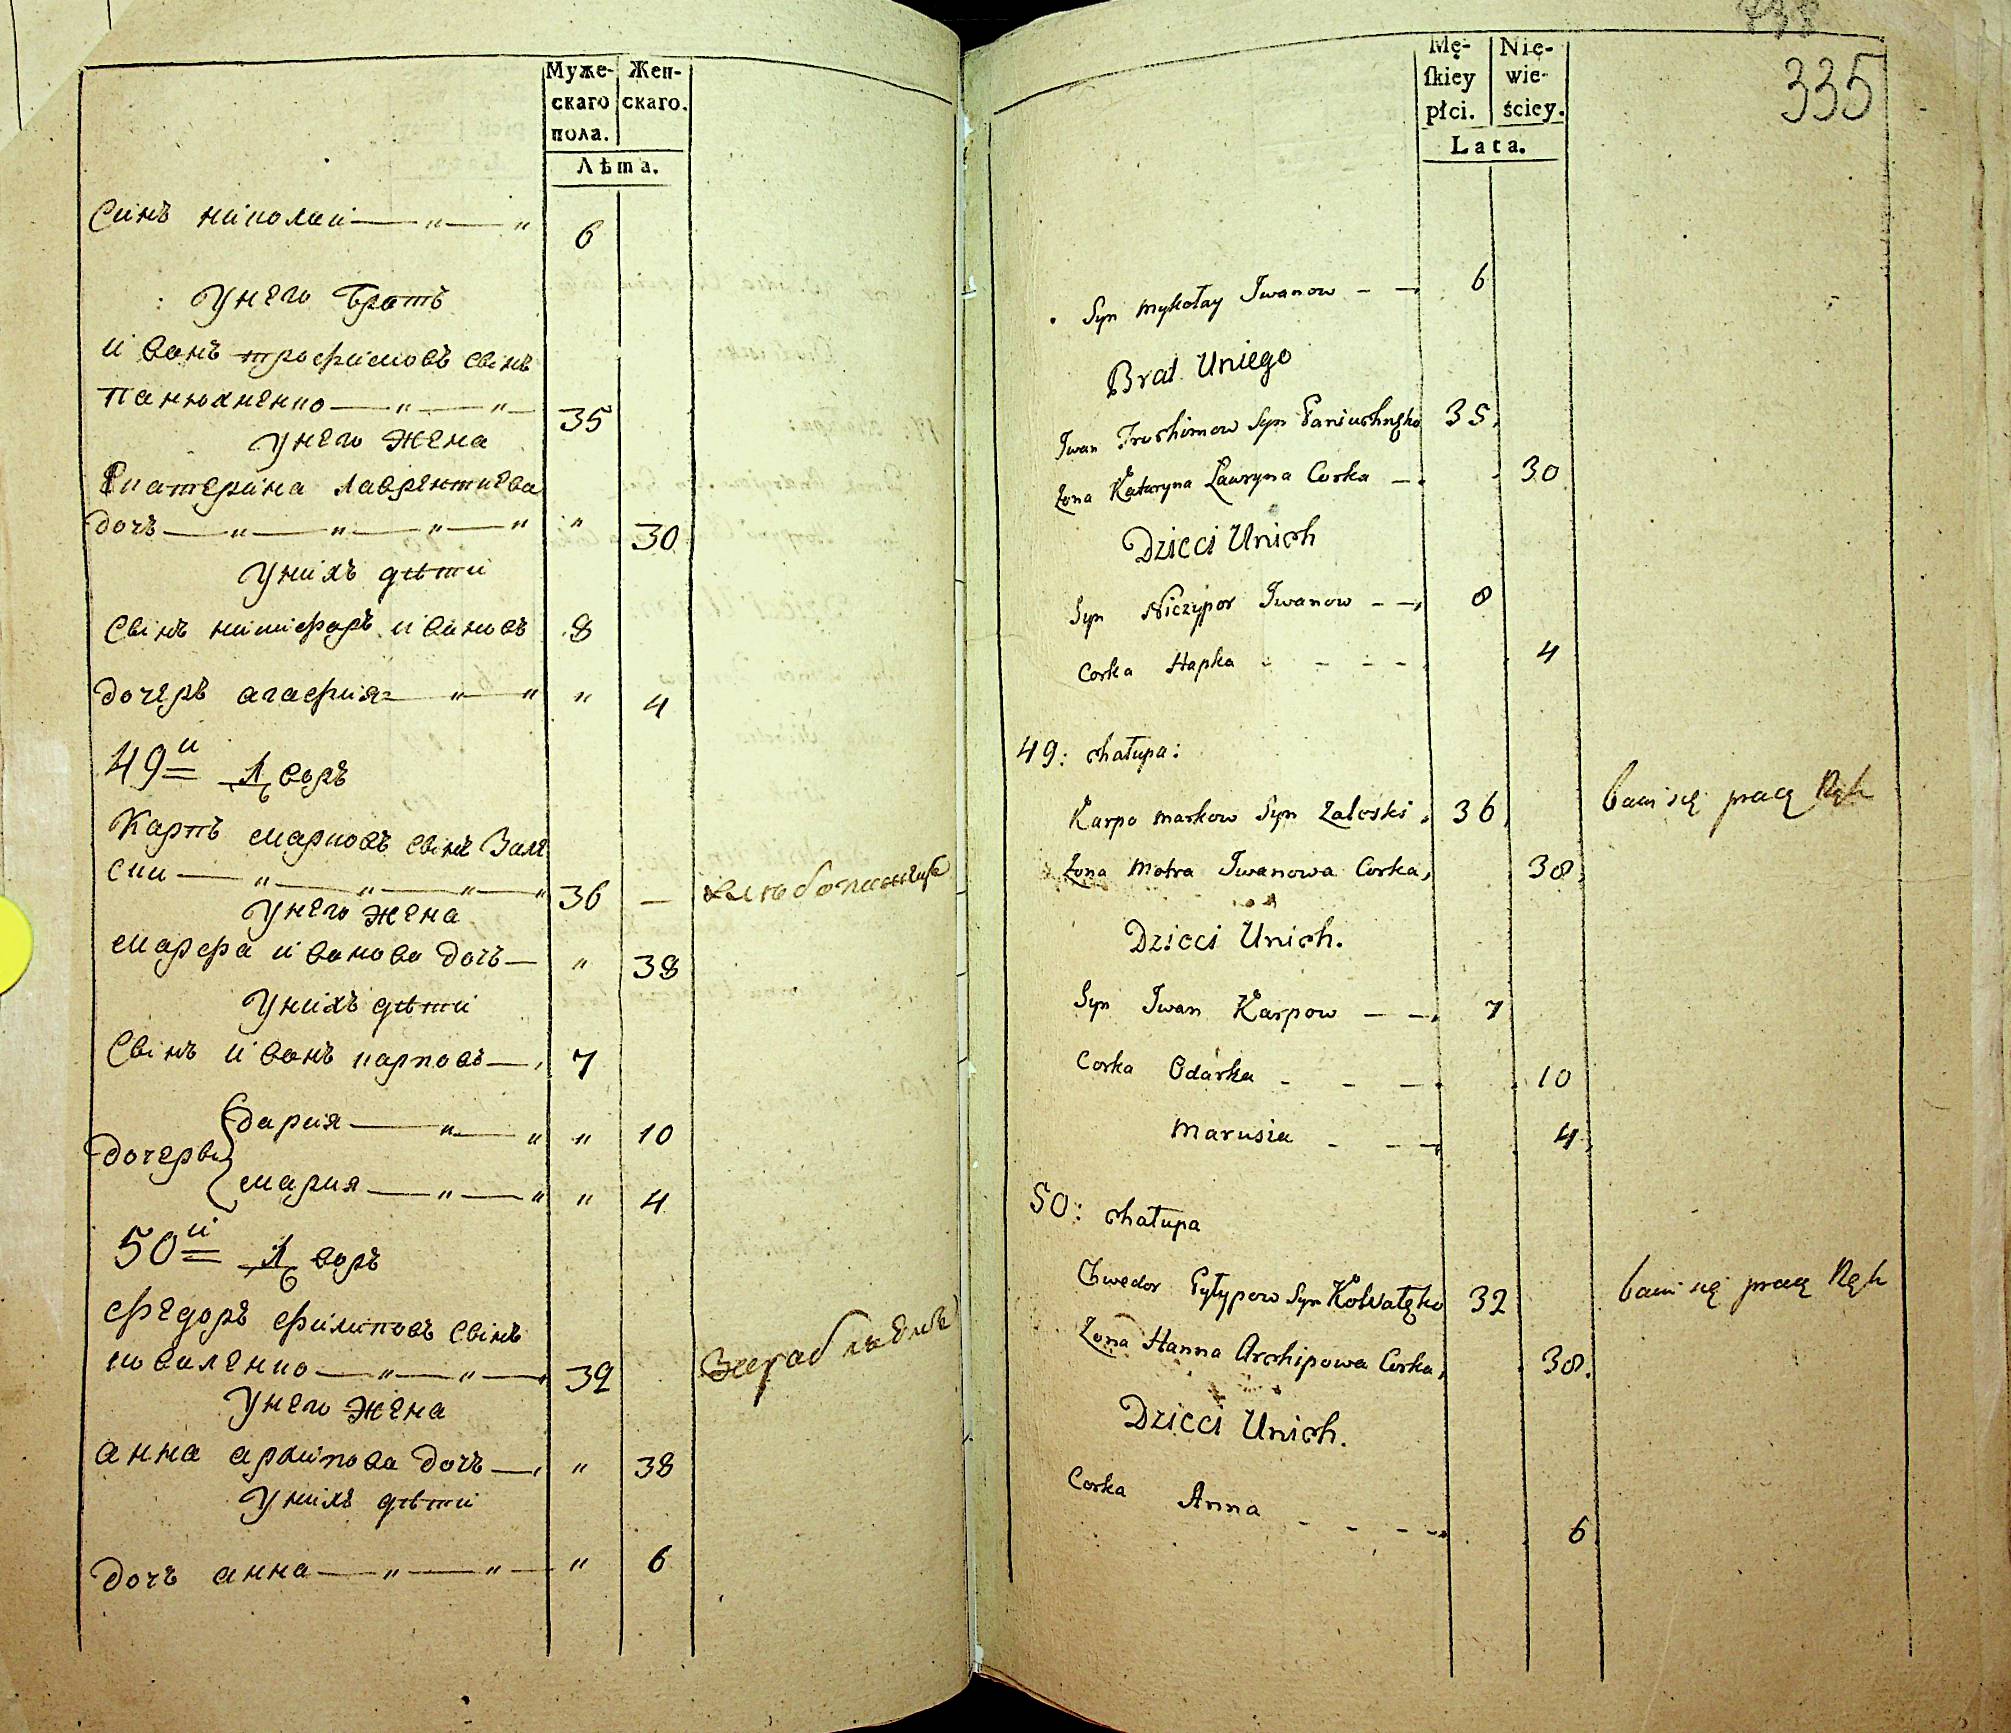 Муже-
скаго
пола.
Жен-
скаго.
Лѣта.
Синъ николаи — " — " 6
Унего братъ
иванъ трофимовъ свінъ
панюхненко — " — " — 35
Унего жена
Екатерина лаврентиева
дочъ — " — " — " — " " 30
Унихъ дѣти
Свінъ никифоръ ивановъ 8
дочеръ агафия — " — " " 4
49й дворъ
Карпъ марковъ свінъ Зале
ски — " — " — " — " 36 —
Унего жена
марфа иванова дочъ — " 38
Унихъ дѣти
Свінъ иванъ карповъ — 7
дочерви
дария — " — " " 10
мария — " — " " 4
50й дворъ
федоръ филиповъ свінъ
коваленко — " — " — 32
Унего жена
анна архипова дочъ — " 38
Унихъ дѣти
дочъ анна — " — " — " 6
335
Mę-
ſkiey
płci.
Nie-
wie-
ściey.
Lata.
Syn mykołay Iwanow - - 6
Brat Uniego
Iwan Trochimow Syn Paniuchnęko 35
Zona Kataryna Lawryna Corka - 30
Dzieci Unich
Syn Niczypor Iwanow - - 8
Corka Hapka - - - - 4
49: chałupa:
Karpo markow Syn Zaleski 36 bawi się pracą Rąk
Zona Motra Iwanowa Corka 38
Dzieci Unich.
Syn Iwan Karpow - - 7
Corka Odarka - - - 10
Marusia - - - 4
50: chałupa
Chwedor Pyłypow Syn Kowalęko 32 bawi się pracą Rąk
Zona Hanna Archipowa Corka 38.
Dzieci Unich.
Corka Anna - - - - 6